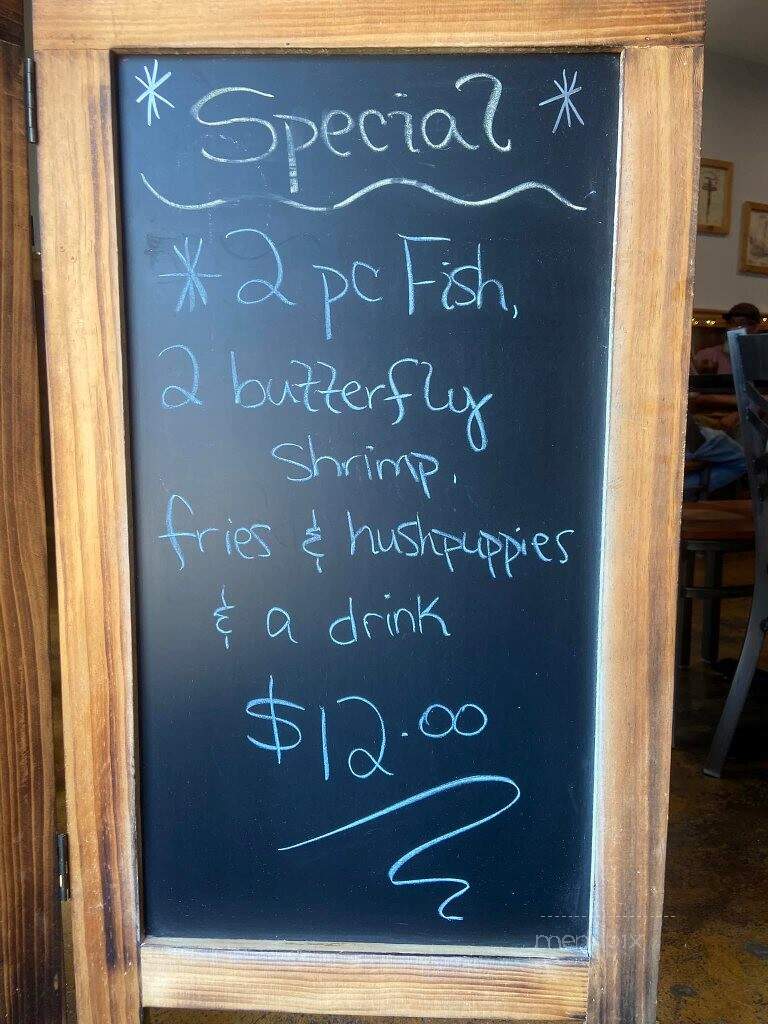 * Special *
* 2 pc Fish,
2 butterfly
shrimp.
fries & hushpuppies
& a drink
$12.00
menupix